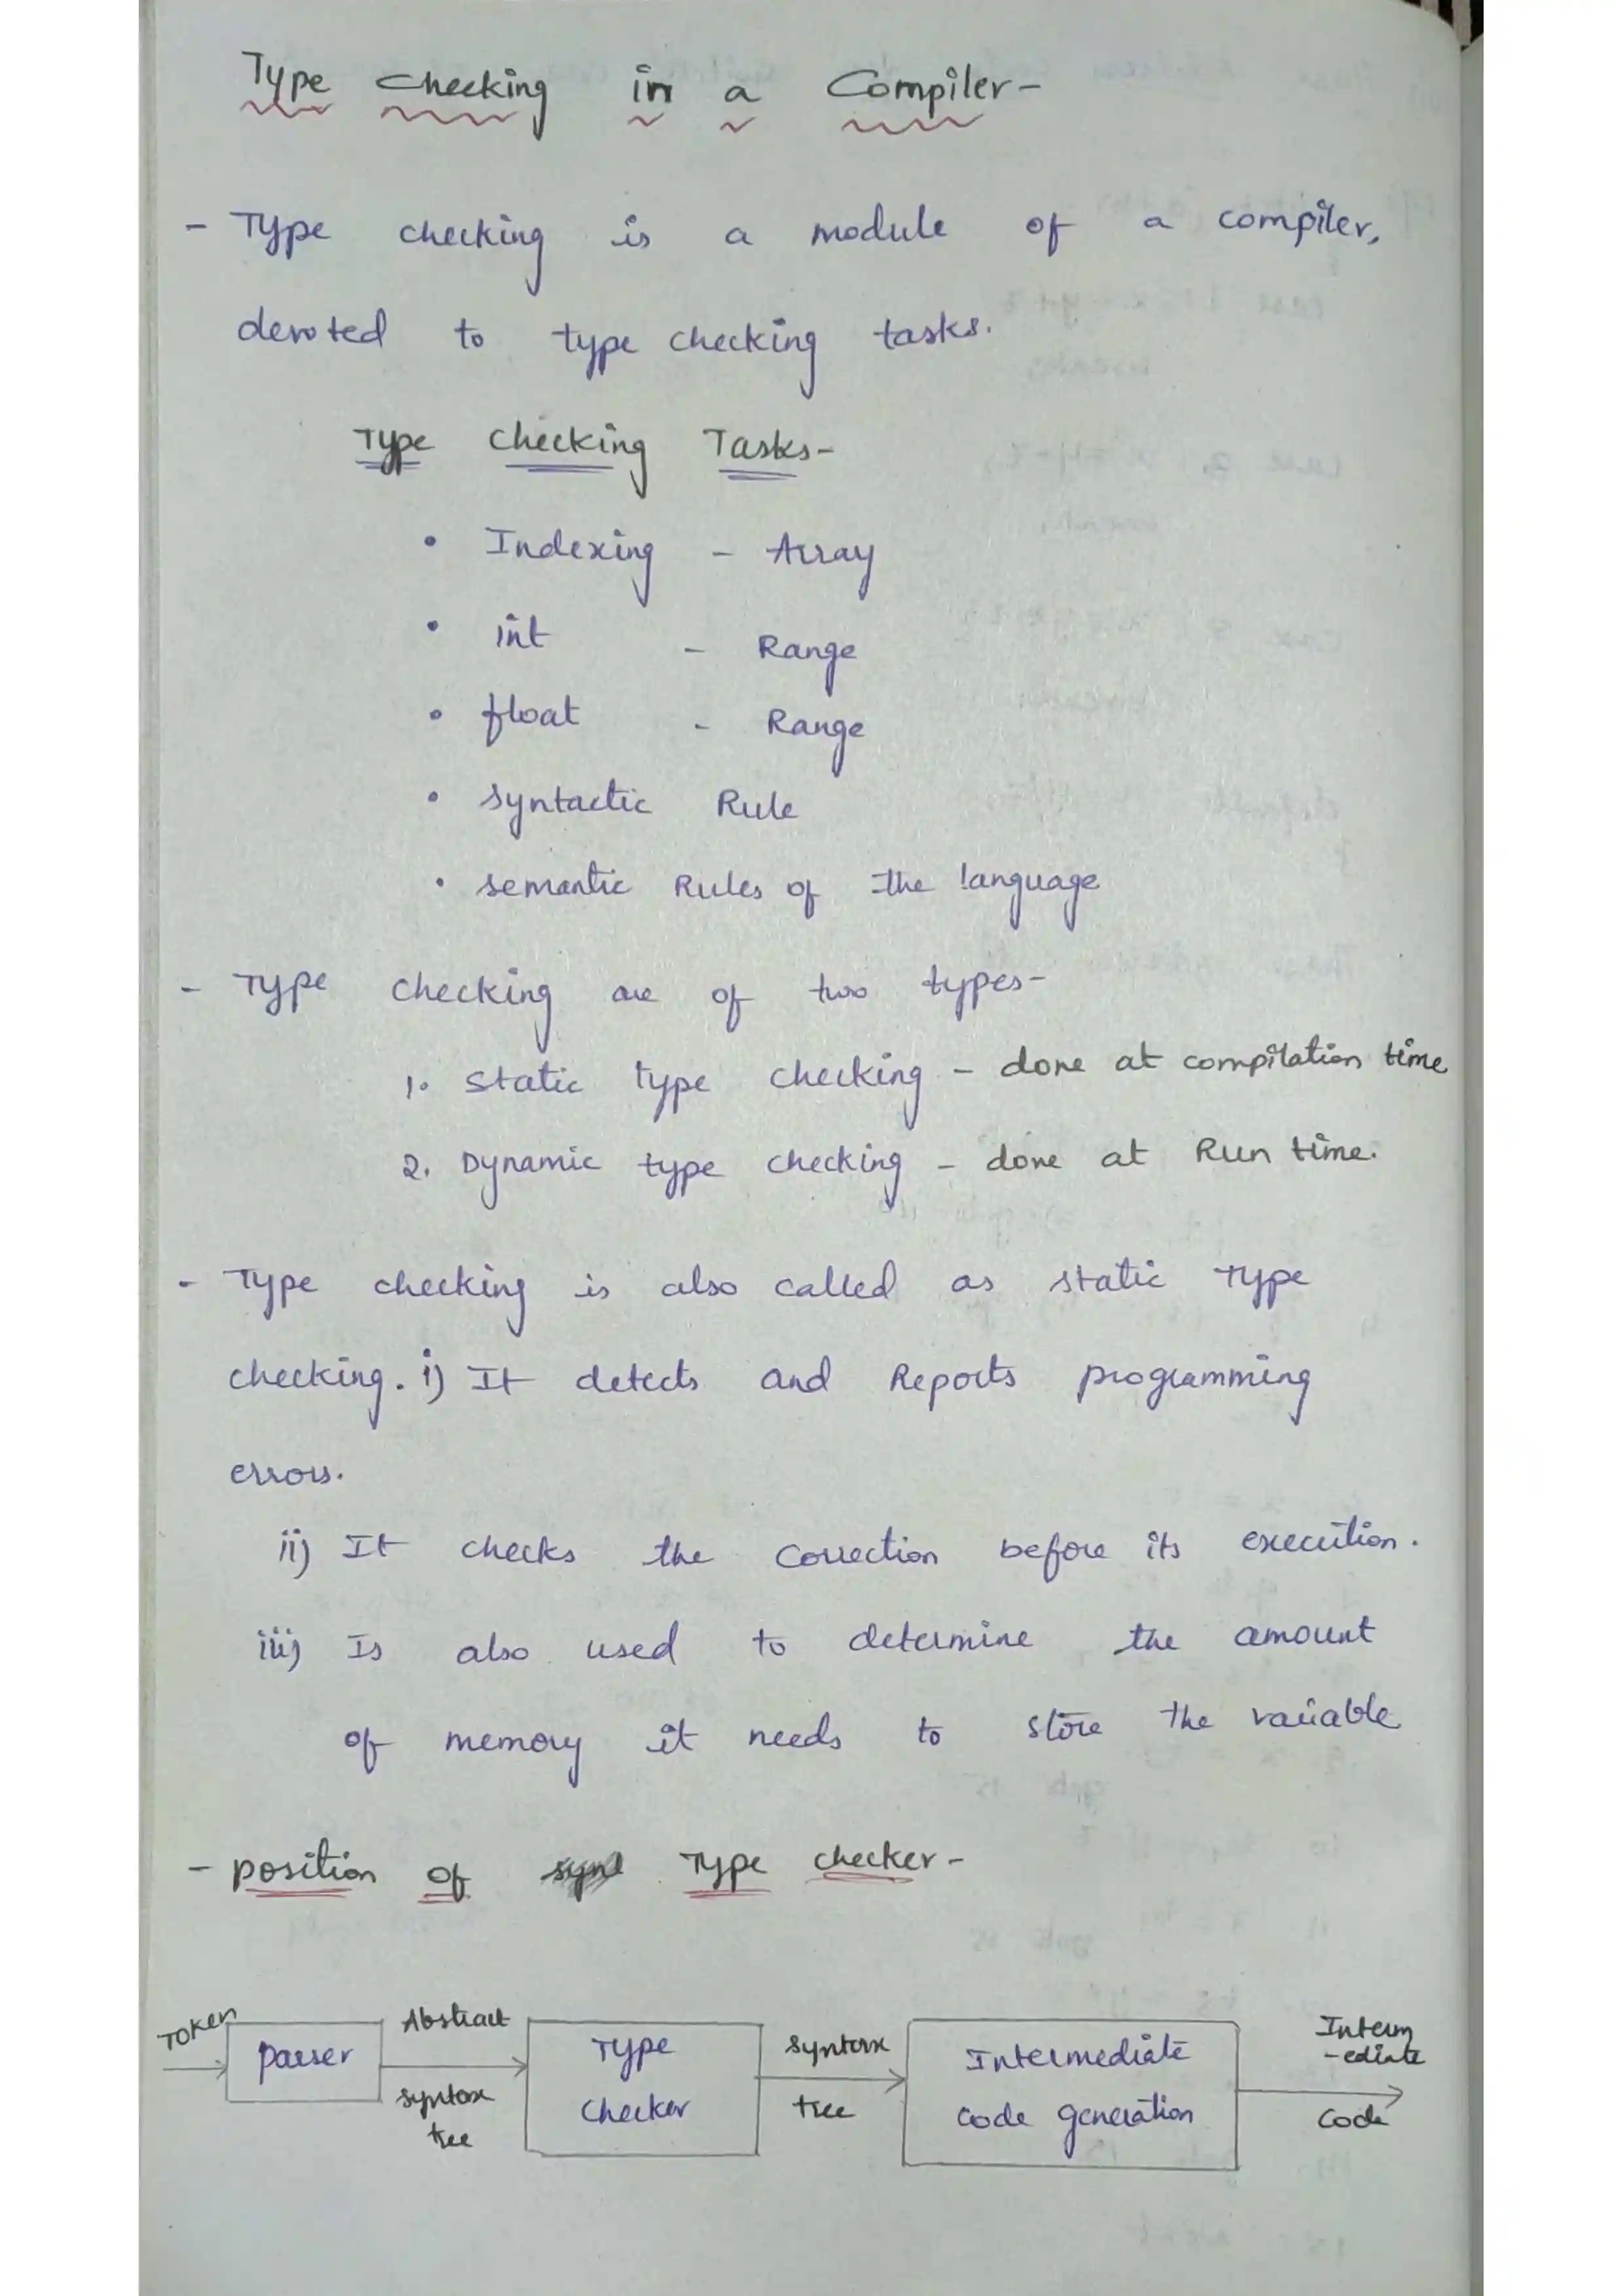 Type Checking in a Compiler-
- Type checking is a module of a compiler,
devoted to type checking tasks.
Type Checking Tasks-
• Indexing - Array
• int - Range
• float - Range
• syntactic Rule
• semantic Rules of the language
- Type checking are of two types-
1. Static type checking - done at compilation time
2. Dynamic type checking - done at Run time.
- Type checking is also called as static type
checking. i) It detects and Reports programming
errors.
ii) It checks the correction before its execution.
iii) Is also used to determine the amount
of memory it needs to store the variable
- position of Type checker-
Token
parser
Abstract
syntax
tree
Type
Checker
syntax
tree
Intermediate
code generation
Interm
-ediate
code